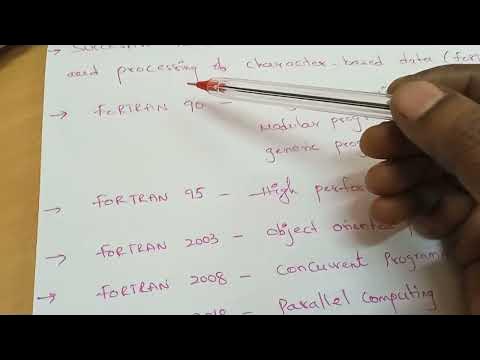 and processing of character-based data (for
→ FORTRAN 90 -
Modular prog
generic pro
→ FORTRAN 95 - High perfo
→ FORTRAN 2003 - object oriented
→ FORTRAN 2008 - Concurrent Program
Parallel Computing